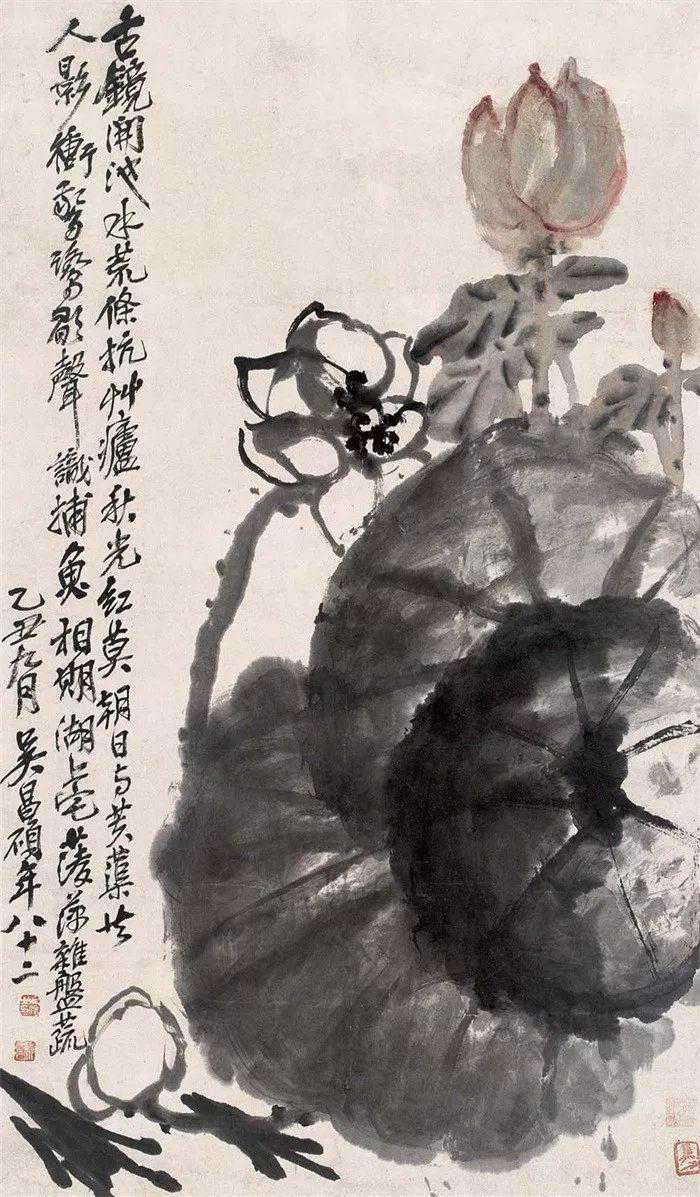 古鏡開池水荒條抗艸廬秋光紅莫朝日与芙蕖
人影衝驚鷺歌聲識捕魚相期湖上宅菱藕雜盤蔬
乙丑九月吳昌碩年八十二